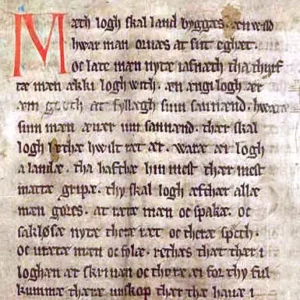 Mæth logh skal land byggæs. æn wild
hwar man oruæs at sit eghæt.
oc late mæn nytæ iafnæth tha thyrf
tæ mæn ækki logh with. æn ængi logh ær
æm gooth at fyllægh sum sannænd. hwaræ
sum mæn æuer um sannænd. thær skal
logh letæ hwilt ræt ær. waræ ær logh
a landæ. tha hafthæ hin mest thær mest
mattæ gripæ. thy skal logh æfthær allæ
mæn gøræs. at rætæ mæn oc spakæ. oc
sakløsæ nytæ theræ ræt oc theræ spæch.
oc urætæ mæn oc folæ. rethæs thæt thær i
loghæn ær skriuæn oc thoræ æi for thy ful
kummæ theræ unskop thær the hauæ i